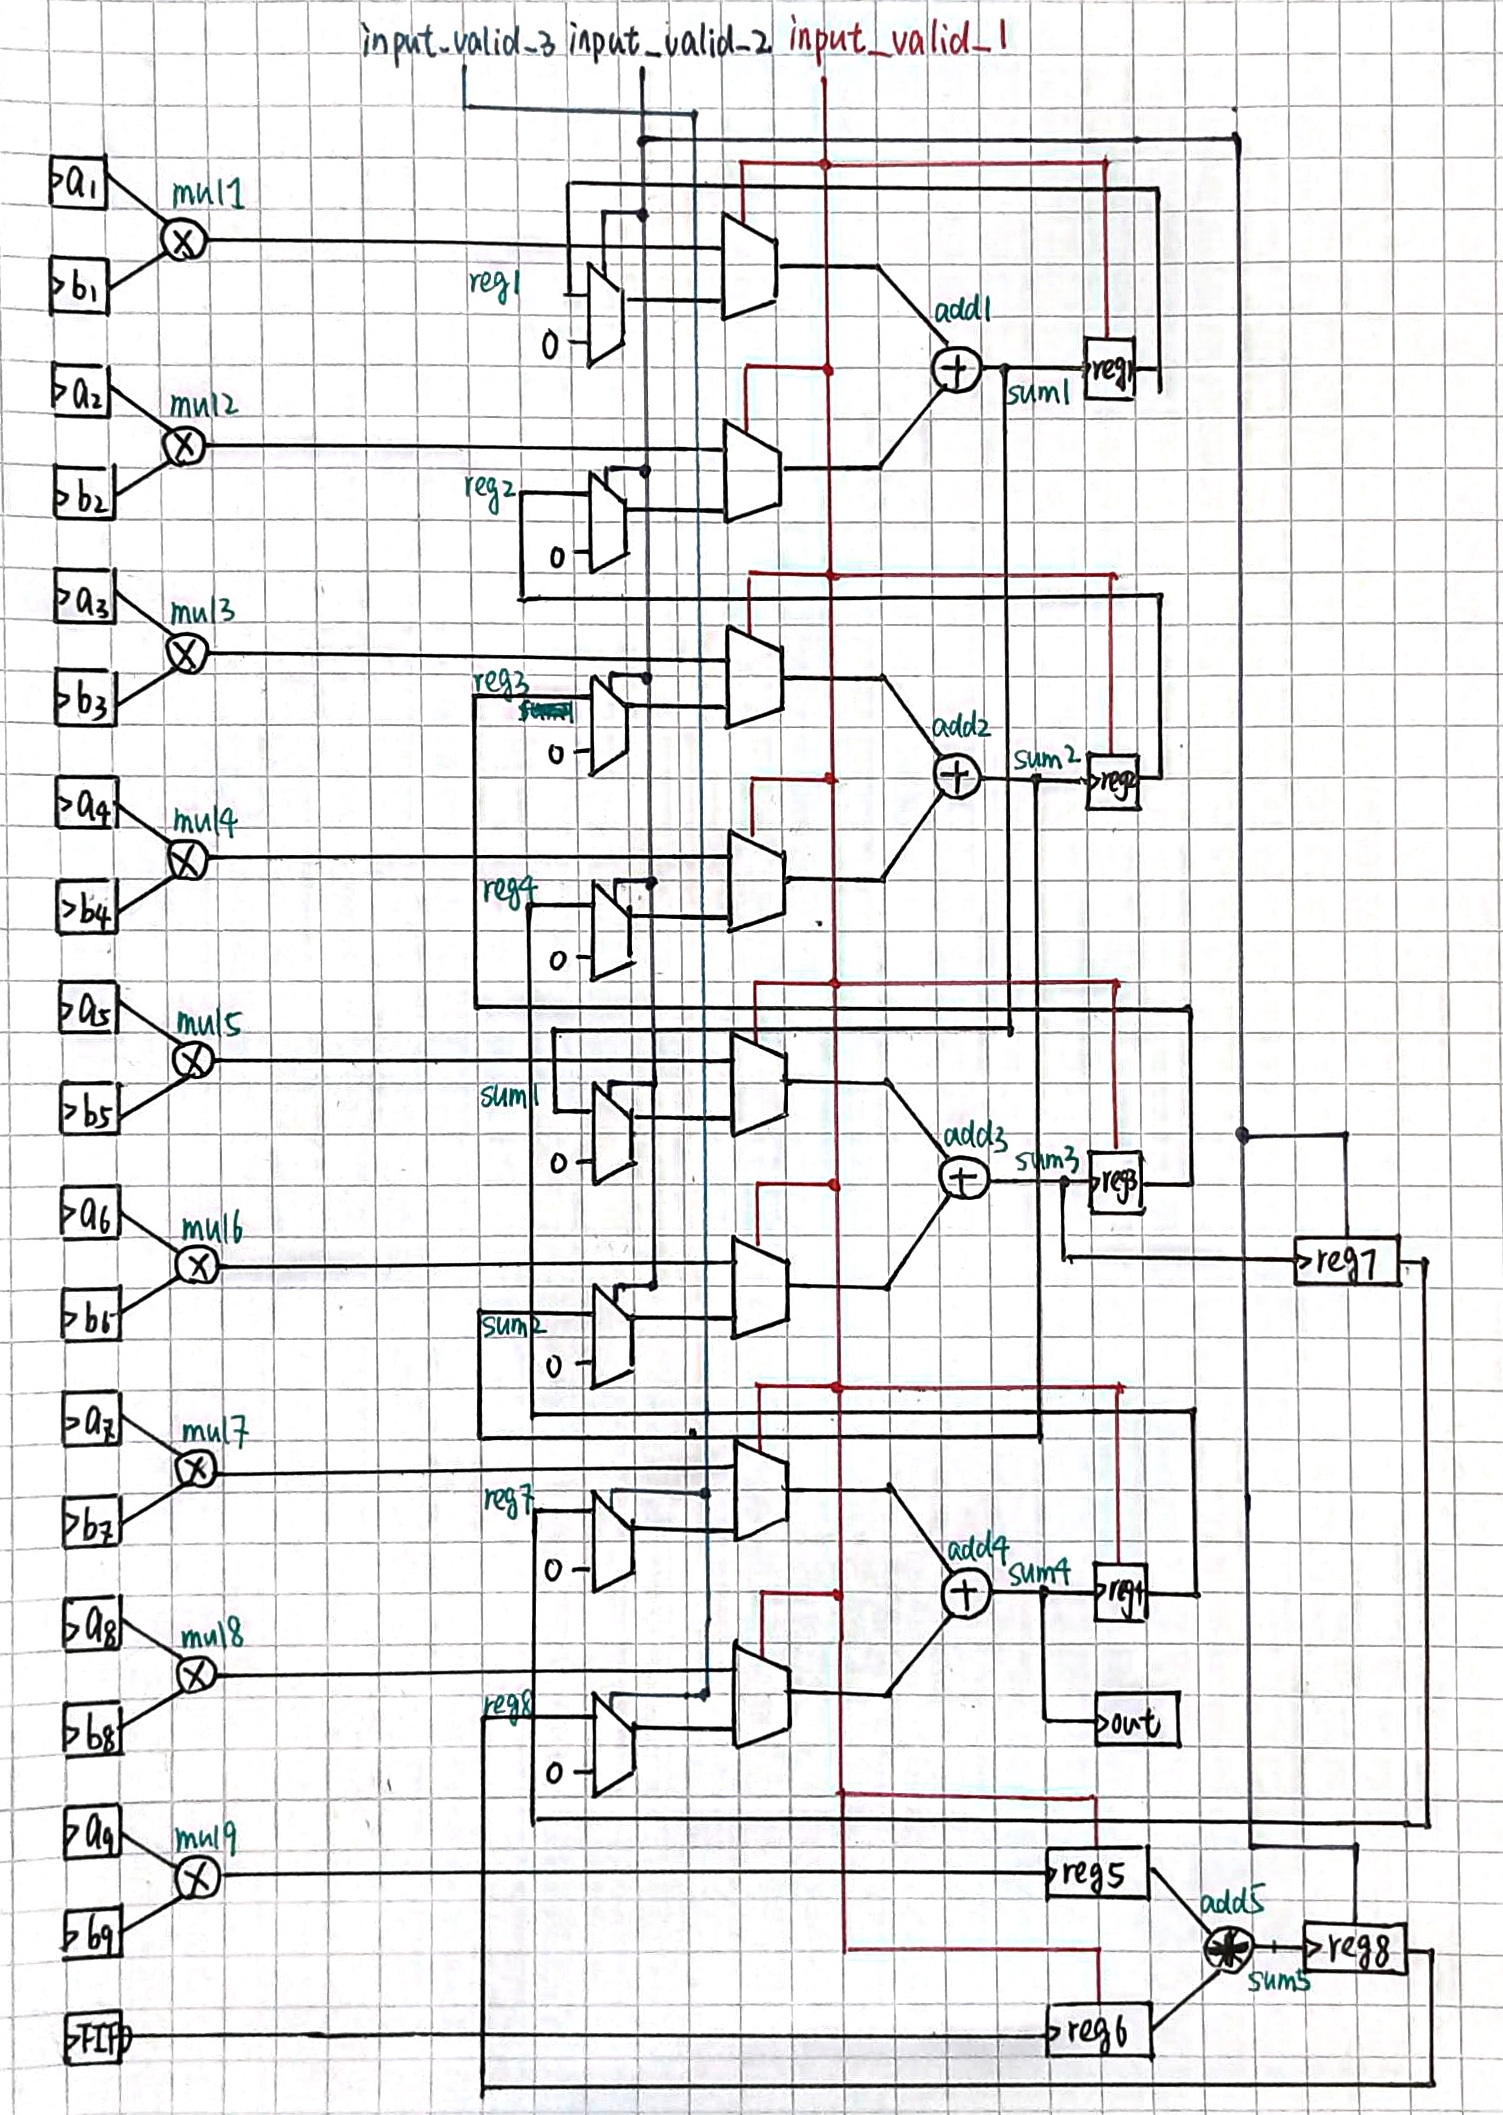 input_valid_3 input_valid_2 input_valid_1
>a1
mul1
>b1
reg1
0
add1
sum1
reg1
>a2
mul2
>b2
reg2
0
>a3
mul3
>b3
reg3
0
add2
sum2
>reg2
>a4
mul4
>b4
reg4
0
>a5
mul5
>b5
sum1
0
add3
sum3
>reg3
>a6
mul6
>b6
sum2
0
>reg7
>a7
mul7
>b7
reg7
0
add4
sum4
>reg4
>a8
mul8
>b8
reg8
0
>out
>a9
mul9
>b9
>reg5
add5
sum5
>reg8
>FIFO
>reg6